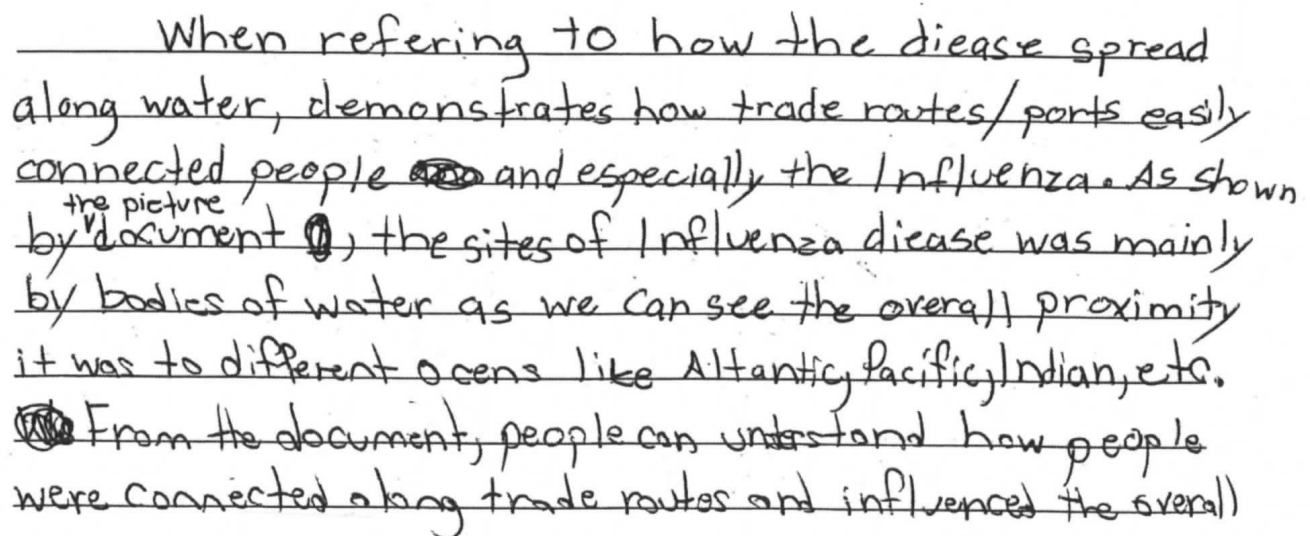 When refering to how the diease spread
along water, demonstrates how trade routes/ports easily
connected people and especially the Influenza. As shown
the picture
by document 1, the sites of Influenza diease was mainly
by bodies of water as we can see the overall proximity
it was to different ocens like Altantic, Pacific, Indian, etc.
From the document, people can understand how people
were connected along trade routes and influenced the overall